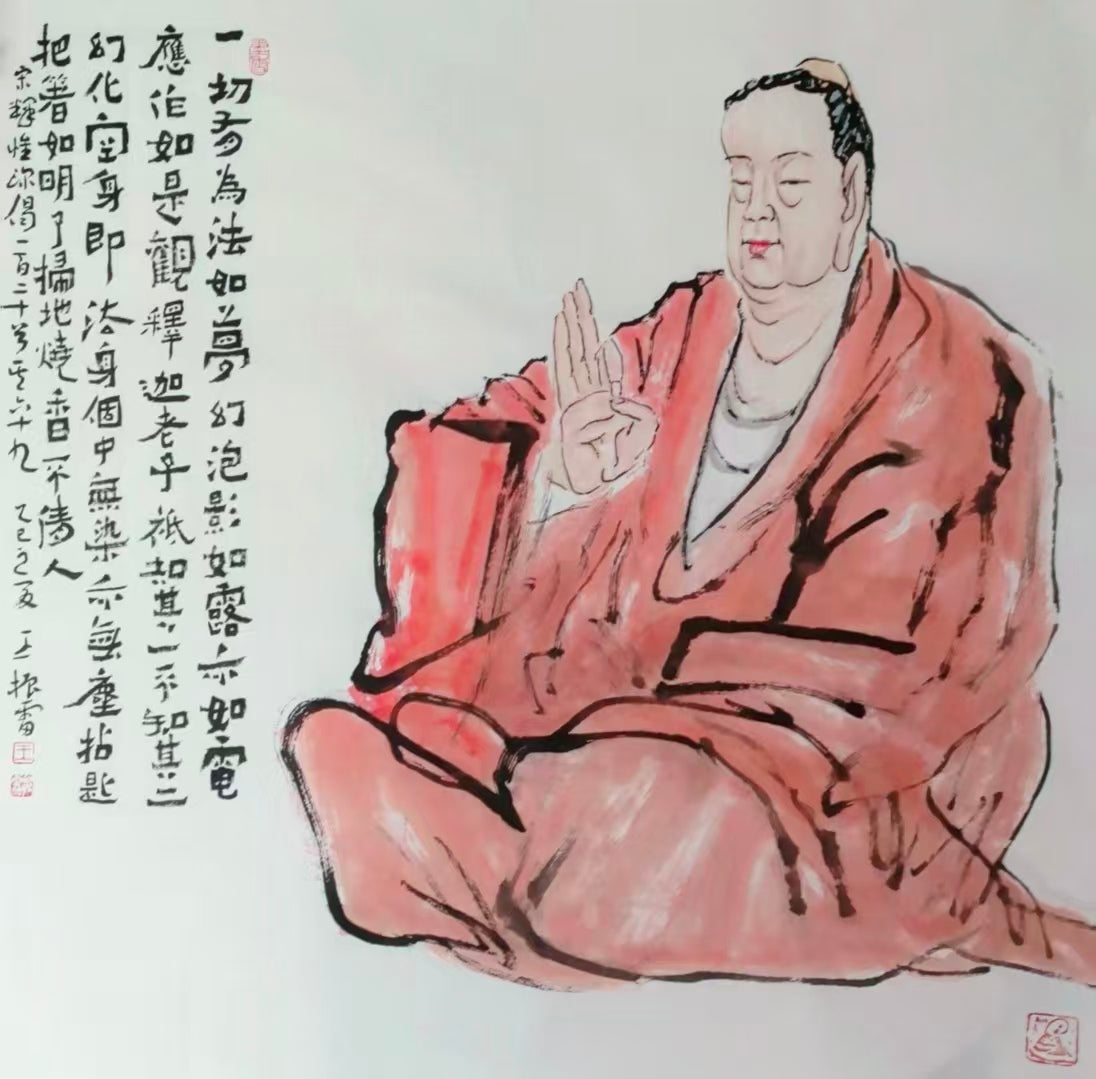 一切有為法如夢幻泡影如露亦如電
應作如是觀釋迦老子祇知其一不知其二
幻化空身即法身個中無染亦無塵拈匙
把箸如明了掃地燒香不倩人
宋釋懷深偈一百二十首其六十九 乙巳之夏 王振雷
王